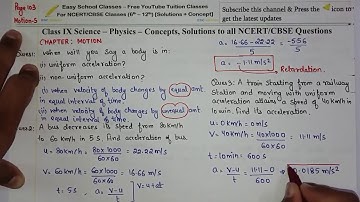 Page 103
Motion-5
Easy School Classes – Free YouTube Tuition Classes
For NCERT/CBSE Classes (6th – 12th) [Solutions + Concept]
Subscribe this channel & Press the icon to get the latest updates
Class IX Science – Physics – Concepts, Solutions to all NCERT/CBSE Questions
CHAPTER: MOTION
Ques1:
When will you say a body is in:
(i) uniform acceleration?
(ii) non-uniform acceleration?
(i) when velocity of body changes by equal amount
in equal interval of time.
(ii) when velocity of body changes by unequal amount
in equal interval of time.
Ques2:
A bus decreases its speed from 80km/h
to 60 km/h in 5s. Find acceleration of bus.
u = 80km/h = 80×1000 / 60×60 = 22.22 m/s
v = 60km/h = 60×1000 / 60×60 = 16.66 m/s
t = 5s a = v-u / t ] v = u+at
a = 16.66-22.22 / 5 = -5.56 / 5
a = -1.11 m/s²
Retardation.
Ques3: A train starting from a railway
station and moving with uniform
acceleration attains a speed of 40km/h in
10 min. Find its acceleration.
u = 0 km/h = 0 m/s
v = 40km/h = 40×1000 / 60×60 = 11.11 m/s
t = 10min = 600 s
a = v-u / t = 11.11-0 / 600 = 0.0185 m/s²